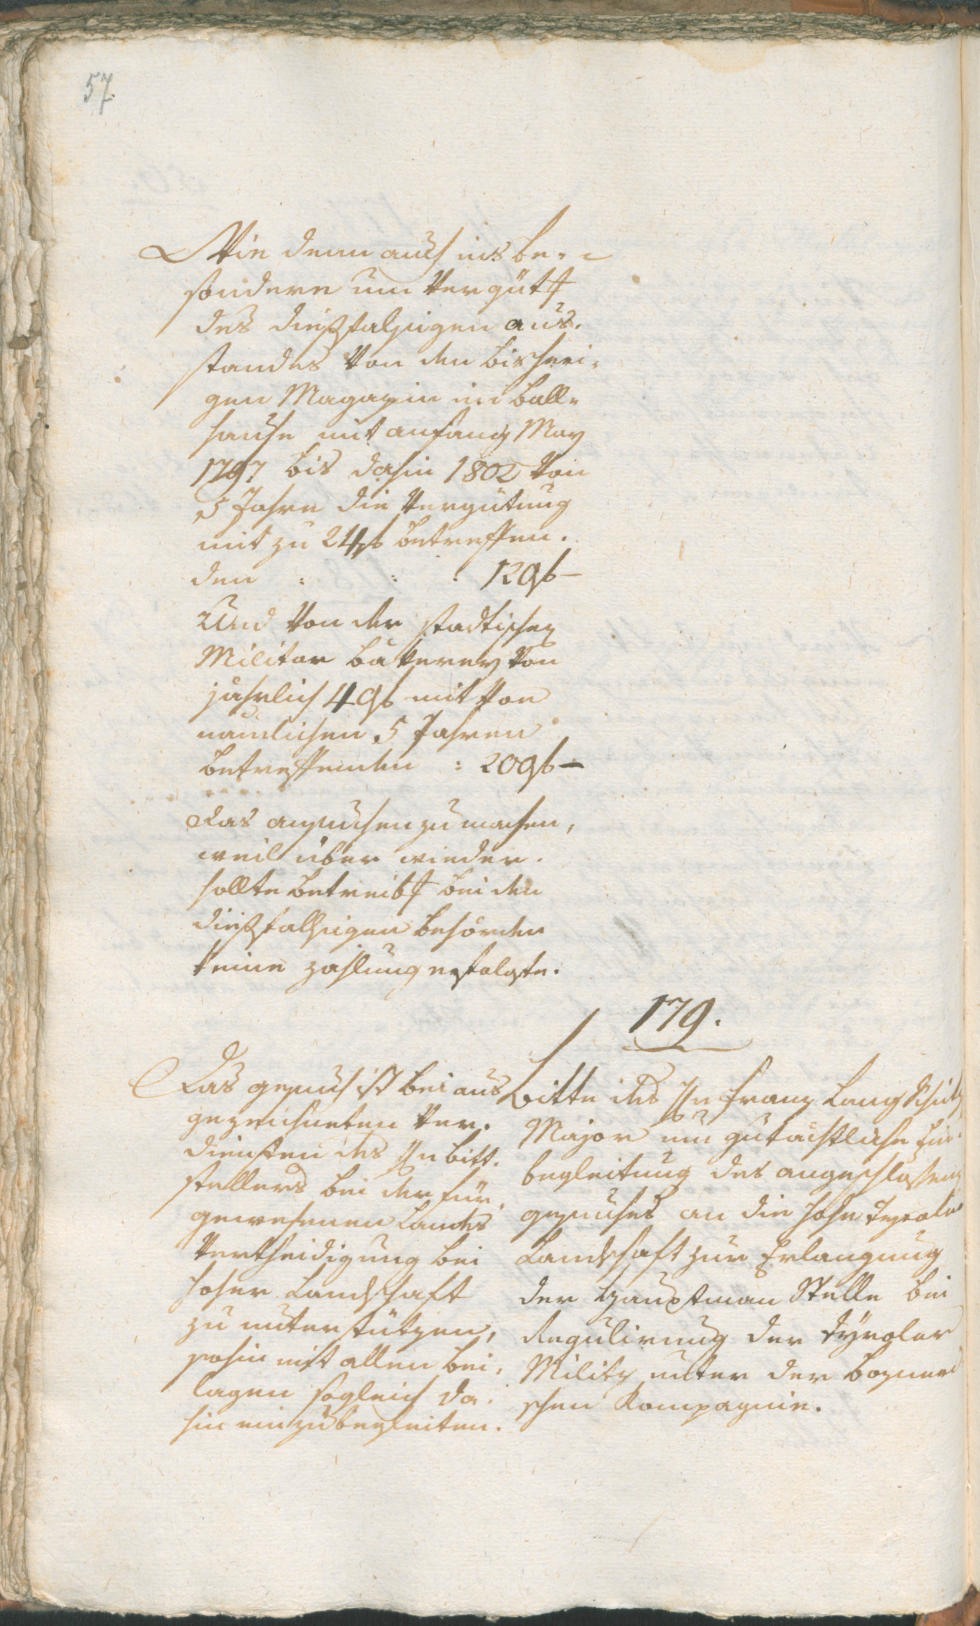 57.
Wie denn auch insbe-
sondere um Vergütt
des dießfalsigen aus-
standes von den bisheri-
gen Magazin im Ball-
hause mit anfang May
1797 bis dahin 1802 von
5 Jahre die Vergütung
mit zu 24 f betreffen-
den : : : 120 f –
Und von der stadtischen
Militar bäkerey von
jährlich 40 f mit von
nämlichen 5 Jahren
betreffenden : 200 f –
das ansuchen zu machen,
weil über wieder-
hollte betreibt bei den
dießfalsigen behörden
keine zahlung erfolgte.
179.
Das gesuch ist bei aus
gezeichneten Ver-
diensten des Hn bitt-
stellers bei der für
gewesenen Landes
Vertheidigung bei
hoher Landschaft
zu unterstützen,
sohin mit allen bei-
lagen sogleich da-
hin einzubegleiten.
Bitte des Hn Franz Lang Schütz
Major um gutächtliche Ein-
begleitung des angeschlossenen
gesuches an die hohe Tyroler
Landschaft zur Erlangung
der Hauptman Stelle bei
Regulirung der Tyroler
Militz unter der bozner-
schen Kompagnie.